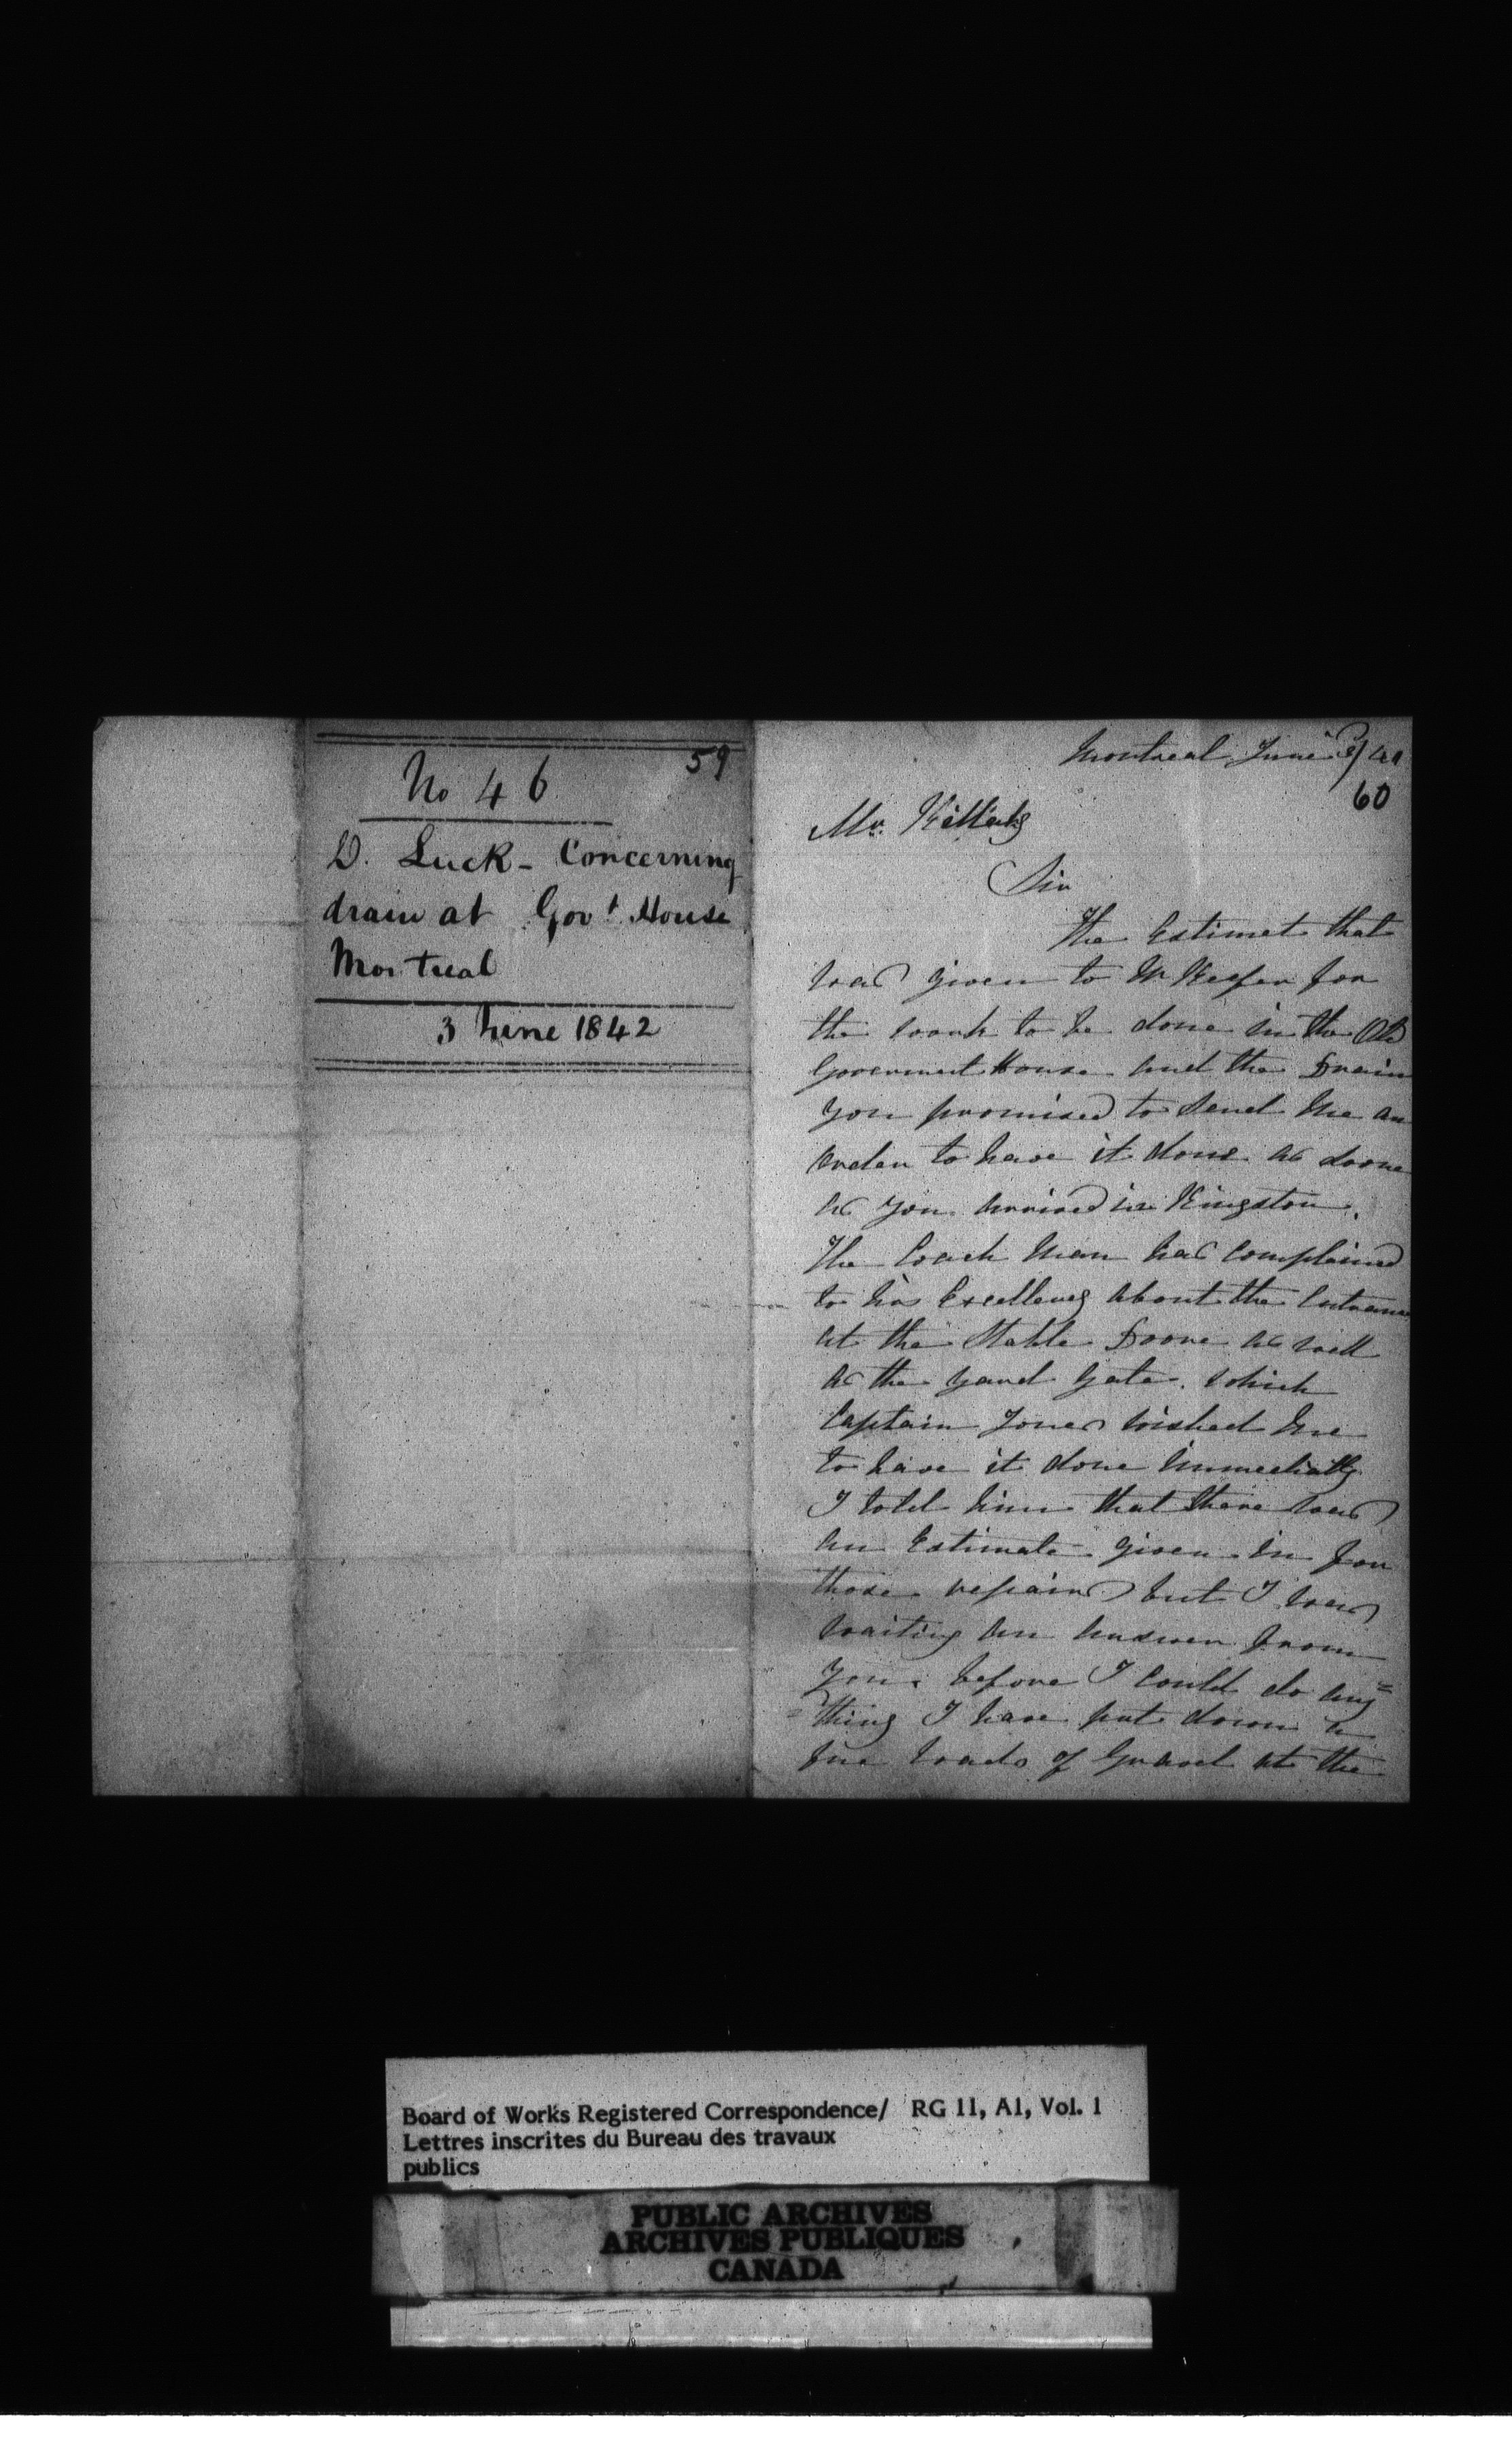 59
No 46
D. Luck - Concerning
drain at Govt House
Montreal
3 June 1842
Montreal June 3/42
60
Mr. Killaly
Sir
The Estimet that
was given to Mr Keefer for
the work to be done in the Old
Goverment House and the Drain
you promised to send me an
order to have it done as soone
as you arrived in Kingston.
The Coach man has complained
to his Excellency about the Entrance
at the Stable Doore as well
as the yard gate. which
Captain Jones wished me
to have it done immediatly
I told him that there was
an Estimate given in for
those repairs but I was
waiting an answer from
you. before I could do any=
=thing I have put down a
fue loads of Gravel at the
Board of Works Registered Correspondence/ RG 11, A1, Vol. 1
Lettres inscrites du Bureau des travaux
publics
PUBLIC ARCHIVES
ARCHIVES PUBLIQUES
CANADA